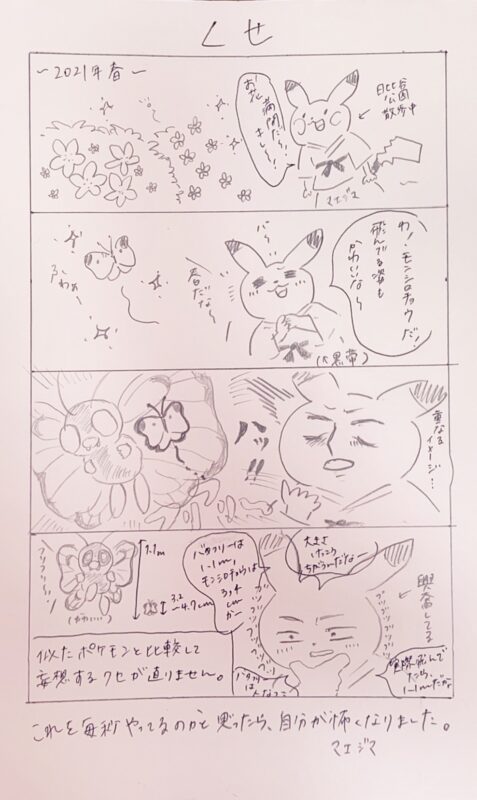 くせ
〜2021年春〜
お花
満開だし
まじし
日比谷
公園
散歩中
マエジマ
わ!モンシロチョウだ!
飛んでる姿も
かわいな〜
パ〜
春だな〜
ふわぁ〜
(↑黒帯)
重なる
イメージ…
ハッ!!
1.1m
3.2
〜4.7cm
(かわいい)
バタフリーは
1.1m,
モンシロチョウは
cm
かー
大きさ
けっこう
ちがうんだなー
ブツブツブツブツ
ブツブツブツブツ
興奮してる
実際飛んで
たら、
1.1mだか
バタフリー
は
似たポケモンと比較して
妄想するクセが直りません。
これを毎秒やってるのかと思ったら、自分が怖くなりました。
マエジマ